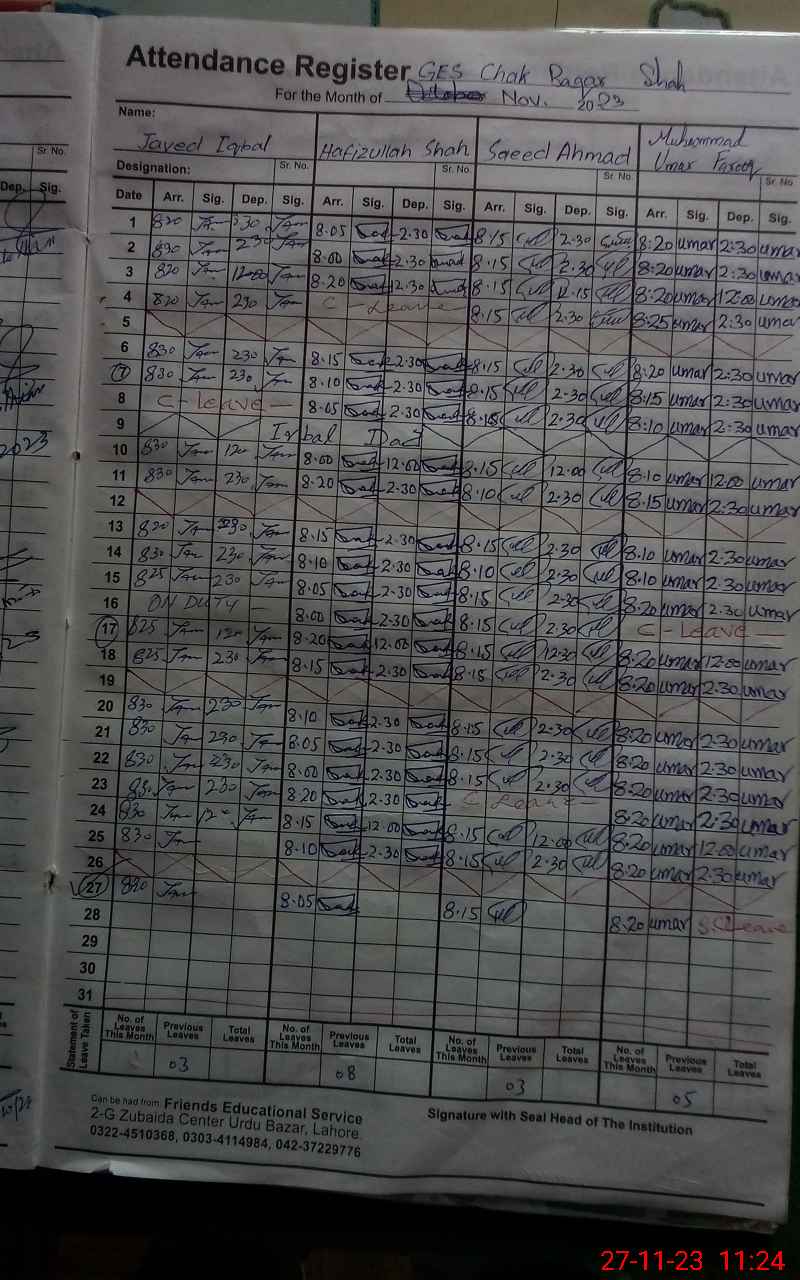 Attendance Register GES Chak Baqar Shah
For the Month of October Nov. 2023
Name: Javed Iqbal Hafizullah Shah Saeed Ahmad Muhammad Umar Farooq
Designation: Sr. No. Sr. No. Sr. No. Sr. No.
Date Arr. Sig. Dep. Sig. Arr. Sig. Dep. Sig. Arr. Sig. Dep. Sig. Arr. Sig. Dep. Sig.
1 820 230 8.05 2.30 8.15 2.30 8:20 umar 2:30 umar
2 830 230 8.00 2.30 8.15 2.30 8:20 umar 2:30 umar
3 820 1200 8.20 12.30 8.15 12.15 8:20 umar 12:00 umar
4 820 230 C - Leave 8.15 2.30 8:25 umar 2:30 umar
5
6 830 230 8.15 2.30 8.15 2.30 8:20 umar 2:30 umar
7 830 230 8.10 2.30 8.15 2.30 8:15 umar 2:30 umar
8 C - Leave - 8.05 2.30 8.15 2.30 8:10 umar 2:30 umar
9 Iqbal Day
10 830 120 8.00 12.00 8.15 12.00 8.10 umar 12:00 umar
11 830 230 8.20 2.30 8.10 2.30 8.15 umar 2:30 umar
12
13 820 230 8.15 2.30 8.15 2.30 8.10 umar 2:30 umar
14 830 230 8.10 2.30 8.10 2.30 8.10 umar 2:30 umar
15 825 230 8.05 2.30 8.15 2.30 8:20 umar 2:30 umar
16 ON DUTY - 8.00 2.30 8.15 2.30 C - Leave -
17 825 120 8.20 12.00 8.15 12.30 8:20 umar 12:00 umar
18 825 230 8.15 2.30 8.15 2.30 8:20 umar 2:30 umar
19
20 830 230 8.10 2.30 8.15 2.30 8:20 umar 2:30 umar
21 830 230 8.05 2.30 8.15 2.30 8:20 umar 2:30 umar
22 830 230 8.00 2.30 8.15 2.30 8:20 umar 2:30 umar
23 830 230 8.20 2.30 C Leave - 8:20 umar 2:30 umar
24 830 12- 8.15 12.00 8.15 12.00 8:20 umar 12:00 umar
25 830 8.10 2.30 8.15 2.30 8:20 umar 2:30 umar
26
27 820 8.05 8.15 8:20 umar Leave
28
29
30
31
Statement of Leave Taken No. of Leaves This Month Previous Leaves Total Leaves No. of Leaves This Month Previous Leaves Total Leaves No. of Leaves This Month Previous Leaves Total Leaves No. of Leaves This Month Previous Leaves Total Leaves
03 08 03 05
Can be had from Friends Educational Service
2-G Zubaida Center Urdu Bazar, Lahore.
0322-4510368, 0303-4114984, 042-37229776
Signature with Seal Head of The Institution
Sr. No.
Dep. Sig.
2023
27-11-23 11:24